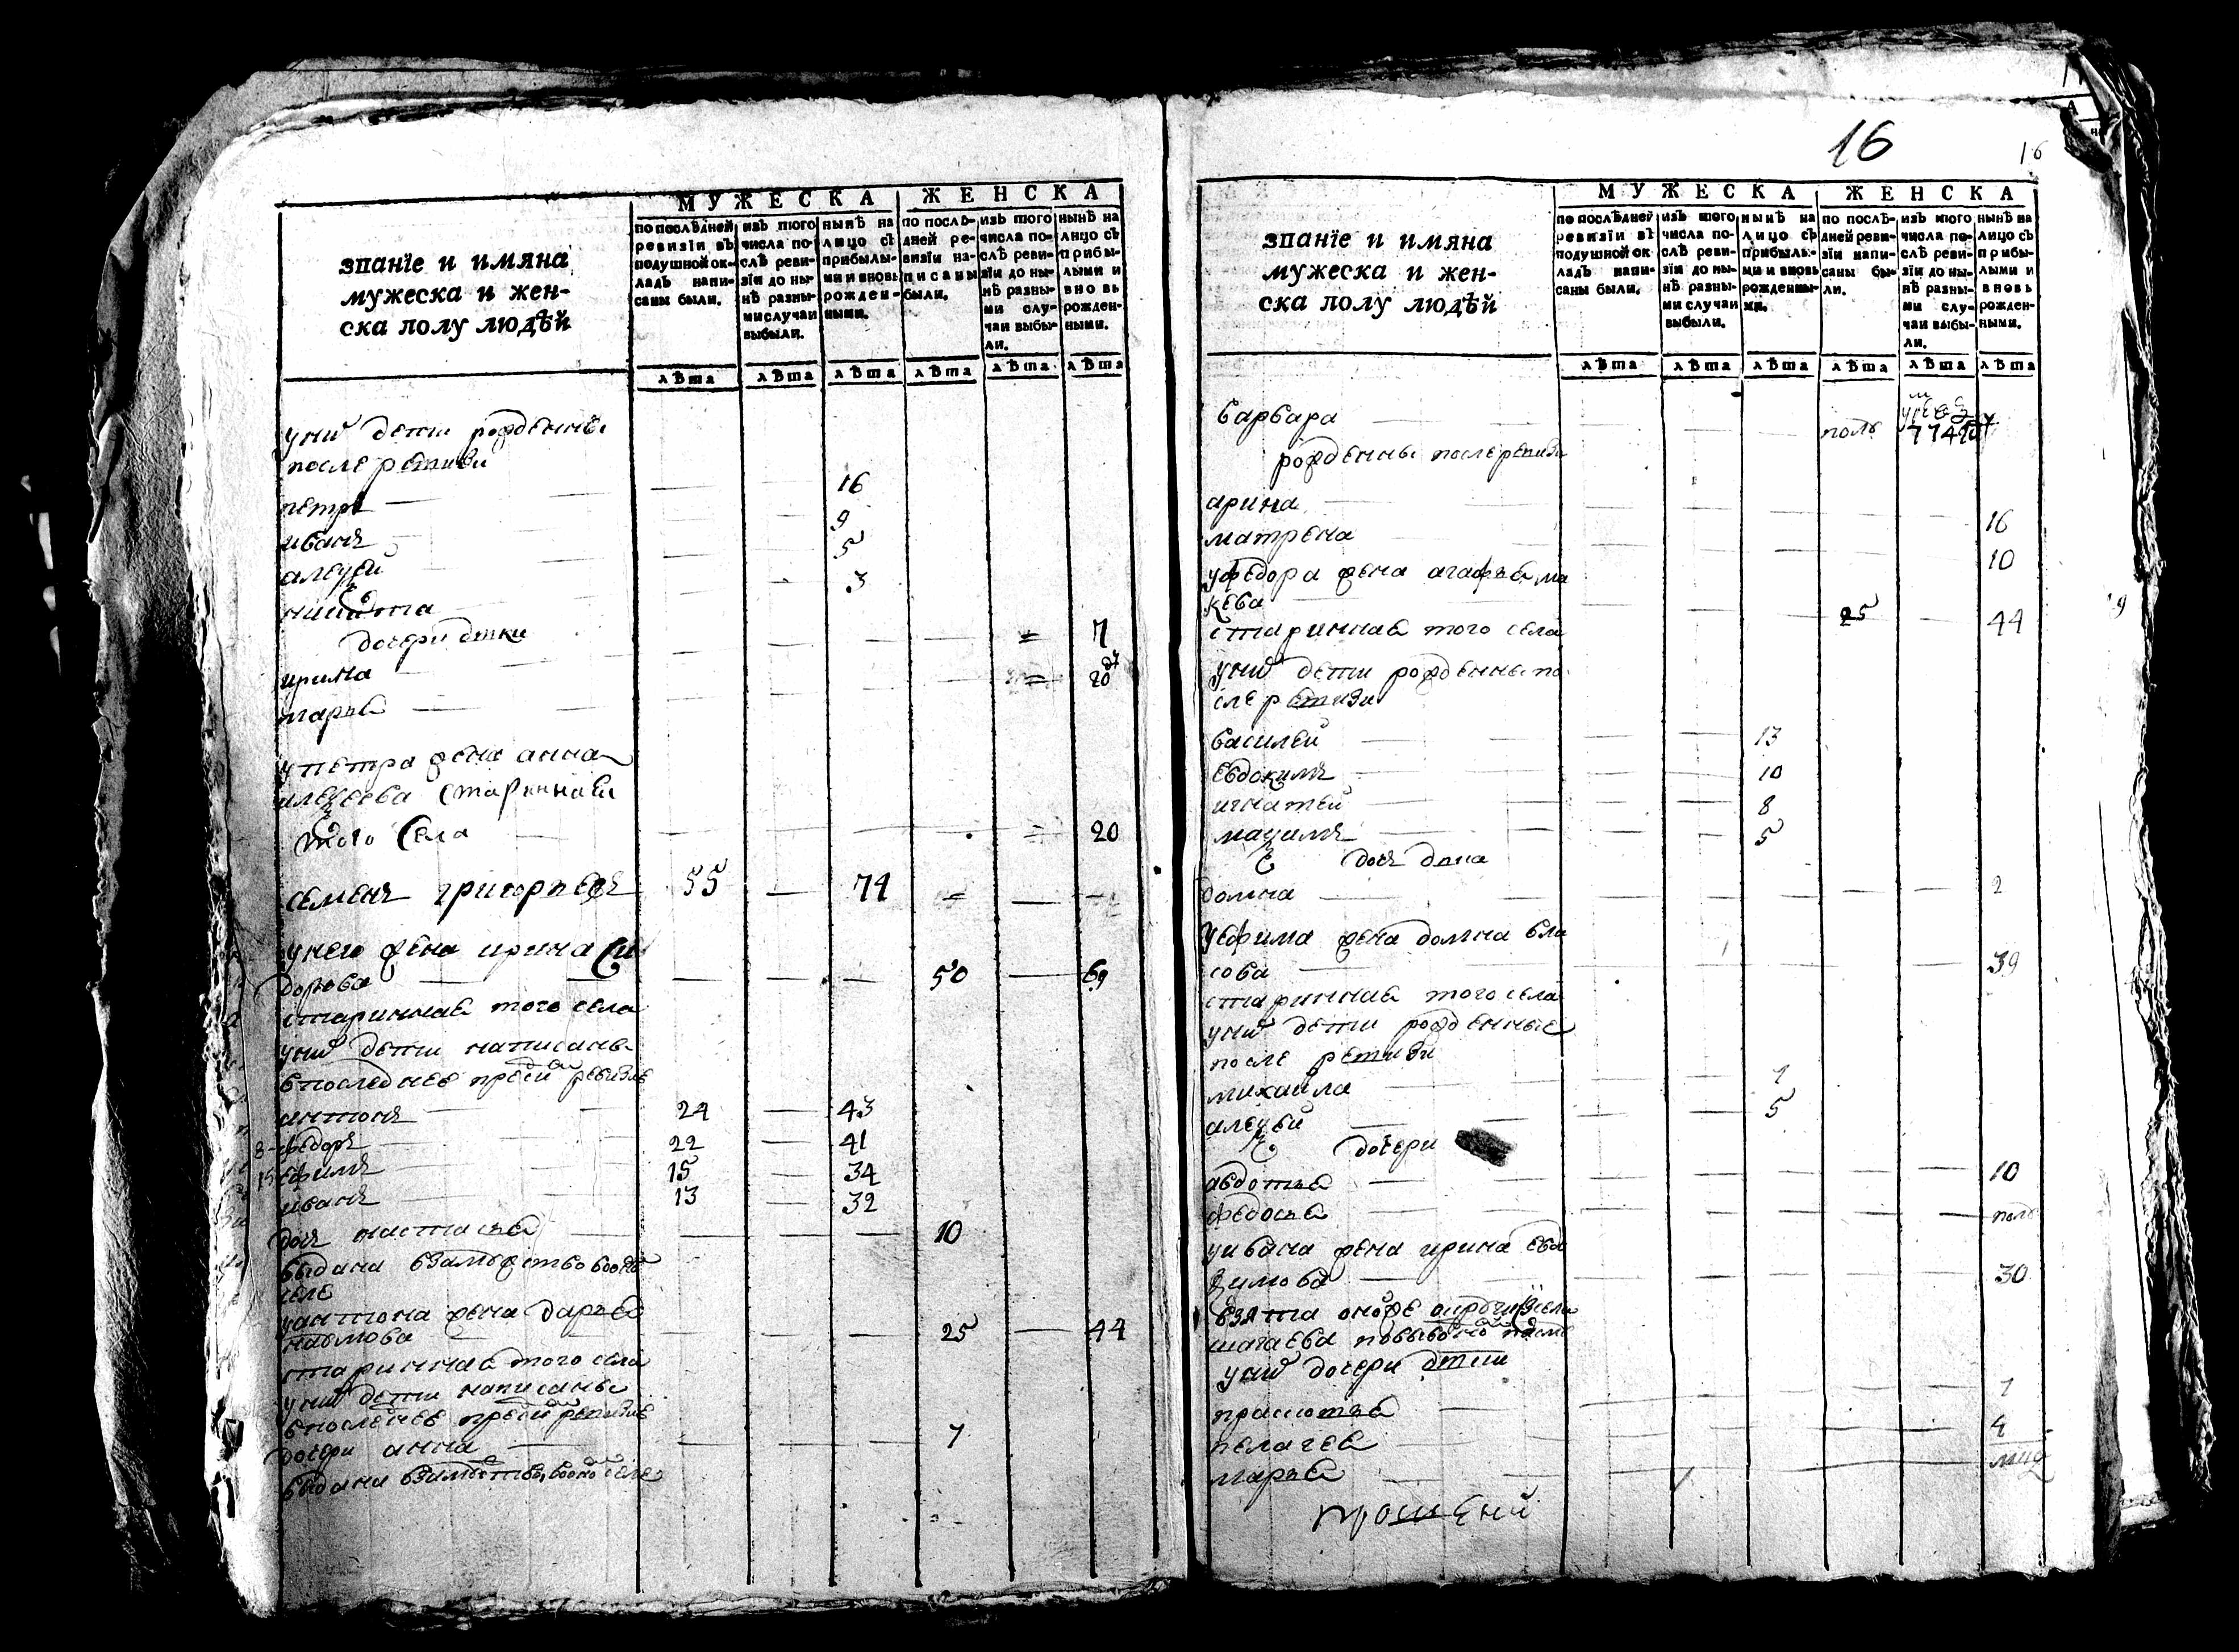 МУЖЕСКА ЖЕНСКА
званїе и имяна
мужеска и жен-
ска полу людѣй
по послѣдней
ревизїи въ
подушной ок-
ладъ напи-
саны были.
изъ того
числа по-
слѣ реви-
зїи до ны-
нѣ разны-
ми случаи
выбыли.
нынѣ на
лицо съ
прибылы-
ми и вновь
рожден-
ными.
по послѣ-
дней ре-
визїи на-
писаны
были.
изъ того
числа по-
слѣ реви-
зїи до ны-
нѣ разны-
ми слу-
чаи выбы-
ли.
нынѣ на
лицо съ
прибы-
лыми и
вновь
рожден-
ными.
лѣта лѣта лѣта лѣта лѣта лѣта
у них дети рожденные
после ревизи
петръ 16
иванъ 9
алеѯей 5
никита 3
дочери девки
ирина 7
марья 20
у петра жена анна
алеѯеева стариннаея
того села 20
семенъ григорьевъ 55 74
у него жена ирина си
дорова 50 69
старинная того села
у них дети написаны
в последнее пред сей ревизие
антонъ 24 43
федоръ 22 41
ефимъ 15 34
иванъ 13 32
дочь настасья 10
выдана в замужство в оном
селе
у антона жена дарья
наумова 25 44
старинная того села
у них дети написаны
в последнее пред сей ревизие
дочери анна 7
выдана в замужство в оном селе
16
16
МУЖЕСКА ЖЕНСКА
званїе и имяна
мужеска и жен-
ска полу людѣй
по послѣдней
ревизїи въ
подушной ок
ладъ напи-
саны были.
изъ того
числа по-
слѣ реви-
зїи до ны-
нѣ разны-
ми случаи
выбыли.
нынѣ на
лицо съ
прибылы-
ми и вновь
рожденны-
ми.
по послѣ-
дней реви-
зїи напи-
саны бы-
ли.
изъ того
числа по-
слѣ реви-
зїи до ны-
нѣ разны-
ми слу-
чаи выбы-
ли.
нынѣ на
лицо съ
прибы-
лыми и
вновь
рожден-
ными.
лѣта лѣта лѣта лѣта лѣта лѣта
варвара полъ
рожденны после ревизи
арина 16
матрена 10
у федора жена агафья ма
кеева 25 44
старинная того села
у них дети рожденны по
сле ревизи
василей 13
евдокимъ 10
игнатей 8
маѯимъ 5
дочь девка
домна 2
у ефима жена домна вла
сова 39
старинная того села
у них дети рожденные
после ревизи
михайла 7
алеѯей 5
дочери
авдотья 10
федосья полъ
у ивана жена ирина евдо
кимова 30
взята оной же округи села
шагаева по выводно письму
у них дочери девки
прасковья 7
пелагея 4
марья